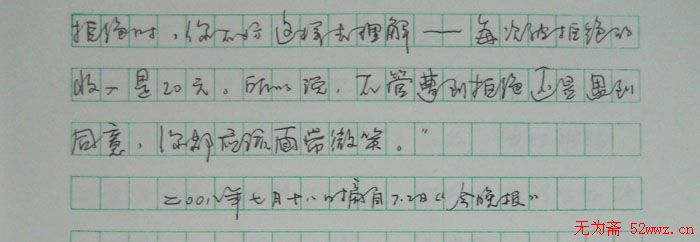 拒绝时,你不妨这样去理解——每次被拒绝的
收入是20元。所以说,不管遭到拒绝还是遇到
同意,你都应该面带微笑。”
二〇〇八年七月十八日摘自7.2日“今晚报”
无为斋 52wwz.cn